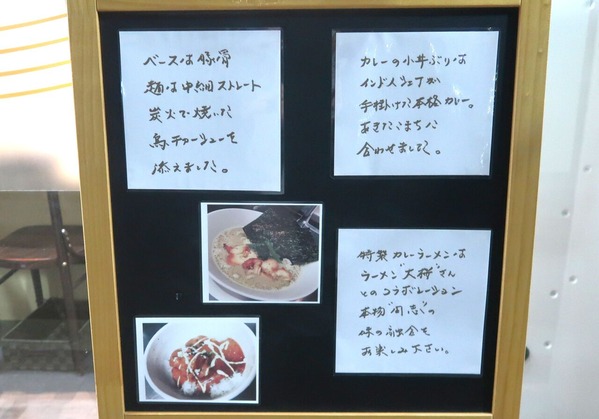 ベースは豚骨
麺は中細ストレート
炭火で焼いた
鳥チャーシューを
添えました。
カレーの小丼ぶりは
インド人シェフが
手掛けた本格カレー。
あきたこまちに
合わせました。
特製カレーラーメンは
ラーメン"大桜"さん
とのコラボレーション
本物"同志"の
味の融合を
お楽しみ下さい。